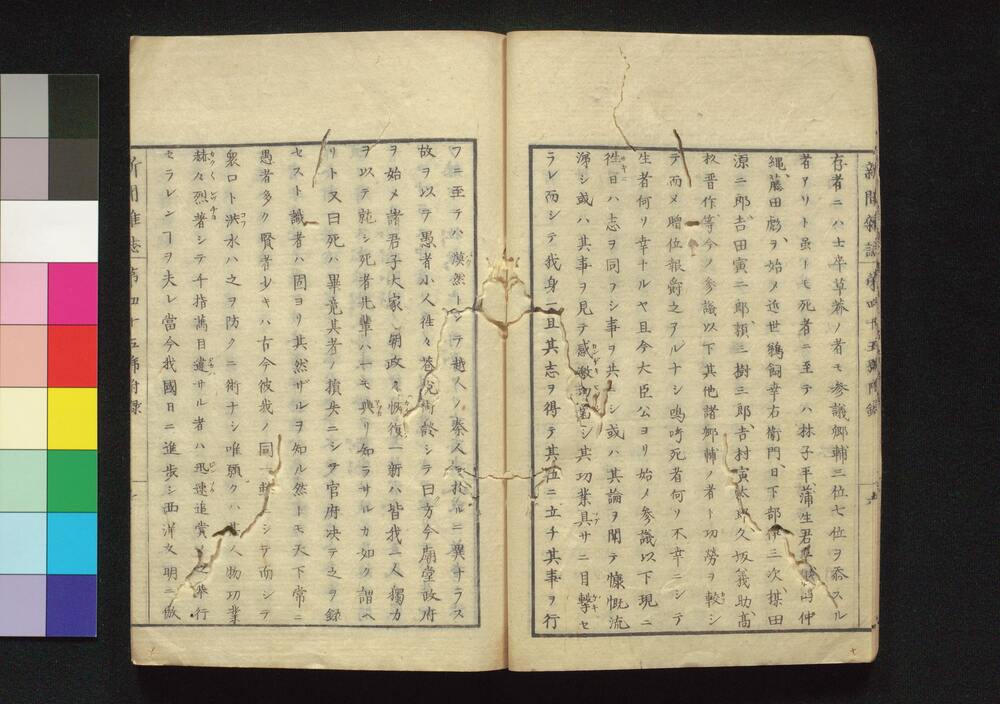 新聞雜誌 第四十五號附録
存者ニハ士卒草莽ノ者モ参議郷輔三位七位ヲ忝スル
者アリト虽𪜈モ死者ニ至テハ林子平、蒲生君平、
縄、藤田彪ヲ始メ近世鵜飼幸右衛門、日下部伊三次、楳田
源二郎、吉田寅二郎、頼三樹三郎、吉村寅太郎、久坂義助、高
杦晋作等今ノ参議以下其他諸卿輔ノ者ト功勞ヲ較シ
テ而メ贈位報爵之アルナシ嗚呼死者何ノ不幸ニシテ
生者何ノ幸ナルヤ且今大臣公ヨリ始ノ参議以下現ニ
徃日ハ志ヲ同フシ事ヲ共ニシ或ハ其論ヲ聞テ慷慨流
涕シ或ハ其事ヲ見テ感激シ其功業具サニ目撃セ
ラレ而シテ我身一旦其志ヲ得テ其位ニ立チ其事ヲ行
フニ至ラハ漠然トシテ越人ノ秦人ニ於ルニ異ナラス
故ヲ以テ愚者小人徃々巷説街談シテ曰方今廟堂政府
ヲ始メ諸君子大家、朝政々恢復一新ハ皆我一人獨力
ヲ以テ能シ死者此輩ハ一モ與リ知ラサルカ如ク謂ヘ
リト又曰死ハ畢竟其者ノ損失ニシテ官府决テ之ヲ録
セスト識者ハ固ヨリ其然ザルヲ知ル然トモ天下常ニ
愚者多ク賢者少キハ古今彼我ノ同一ニシテ而シテ
衆口ト洪水ハ之ヲ防クニ術ナシ唯願クハ其人物功業
赫々烈著シテ千指萬目違サル者ハ迅速追賞之舉行
セラレンヿヲ夫レ當今我國日ニ進歩シ西洋文明ニ倣
新聞雜誌 第四十五號附録